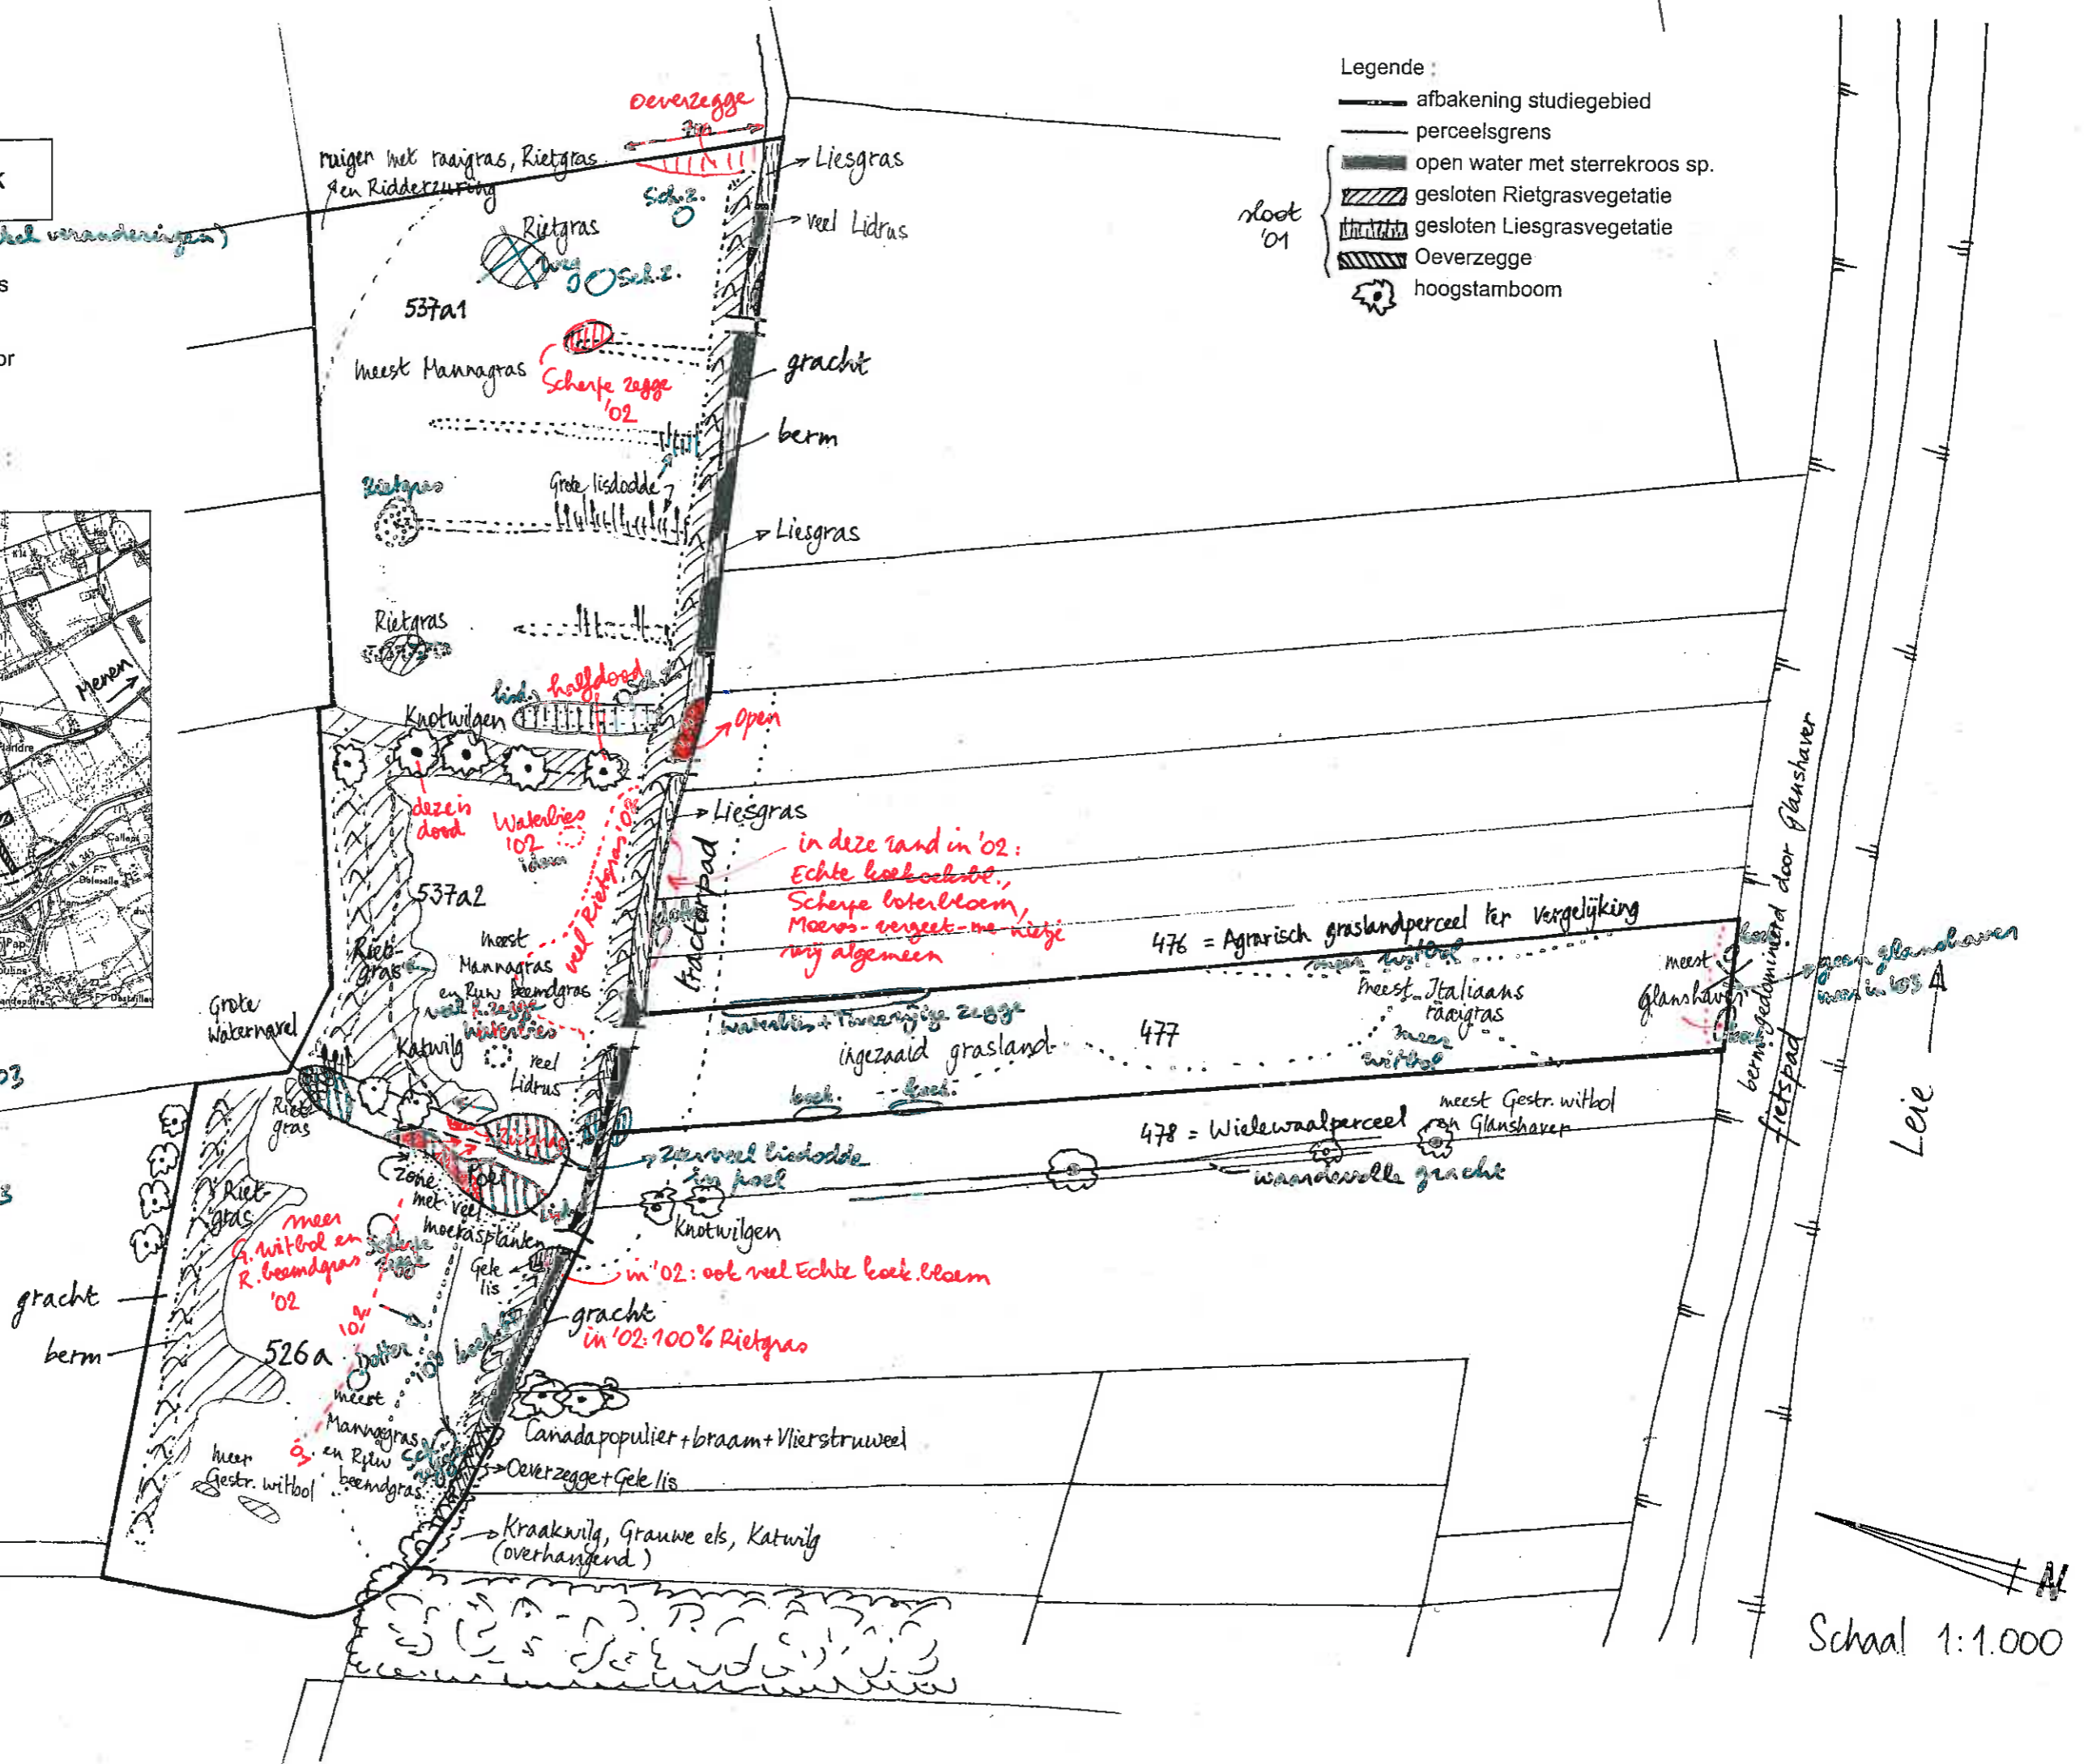 Legende :
afbakening studiegebied
perceelsgrens
open water met sterrekroos sp.
gesloten Rietgrasvegetatie
gesloten Liesgrasvegetatie
Oeverzegge
hoogstamboom
sloot
'01
Oeverzegge
7m
ruigen met raaigras, Rietgras
en Ridderzuring
Liesgras
Sch.z.
veel Lidrus
Rietgras
weg
Sch.z.
537a1
meest Mannagras
Scherpe zegge
'02
gracht
berm
Rietgras
Grote lisdodde
Liesgras
Rietgras
Menen
lisd.
halfdood
Sch.z.
Knotwilgen
Open
deze is
dood
Waterbies
'02
idem
veel Rietgras '02
Liesgras
tractorpad
in deze rand in '02:
Echte koekoeksbl.,
Scherpe boterbloem,
Moeras-vergeet-me-nietje
vrij algemeen
537a2
Riet-
gras
meest
Mannagras
en Ruw beemdgras
veel R. zegge
Waterbies
Katwilg
veel
Lidrus
Grote
Waternavel
476 = Agrarisch graslandperceel ter vergelijking
meer witbol
meest Italiaans
raaigras
meest
Glanshaver
geen glanshaver
meer in '03
Waterbies + Tweerijige zegge
ingezaaid grasland
477
meer
witbol
koek.
koek.
478 = Wielewaalperceel
meest Gestr. witbol
en Glanshaver
waardevolle gracht
berm gedomineerd door Glanshaver
fietspad
Leie
Riet-
gras
Zeer veel lisdodde
in poel
Poel
zone
met veel
moerasplanten
Knotwilgen
Riet-
gras
meer
G. witbol en
R. beemdgras
'02
Scherpe
zegge
Gele
lis
in '02: ook veel Echte koek.bloem
gracht
in '02: 100% Rietgras
gracht
berm
526a
Dotter
meest
Mannagras
en Ruw
beemdgras
meer
Gestr. witbol
Canadapopulier+braam+Vlierstruweel
Oeverzegge+Gele lis
Kraakwilg, Grauwe els, Katwilg
(overhangend)
N
Schaal 1:1.000